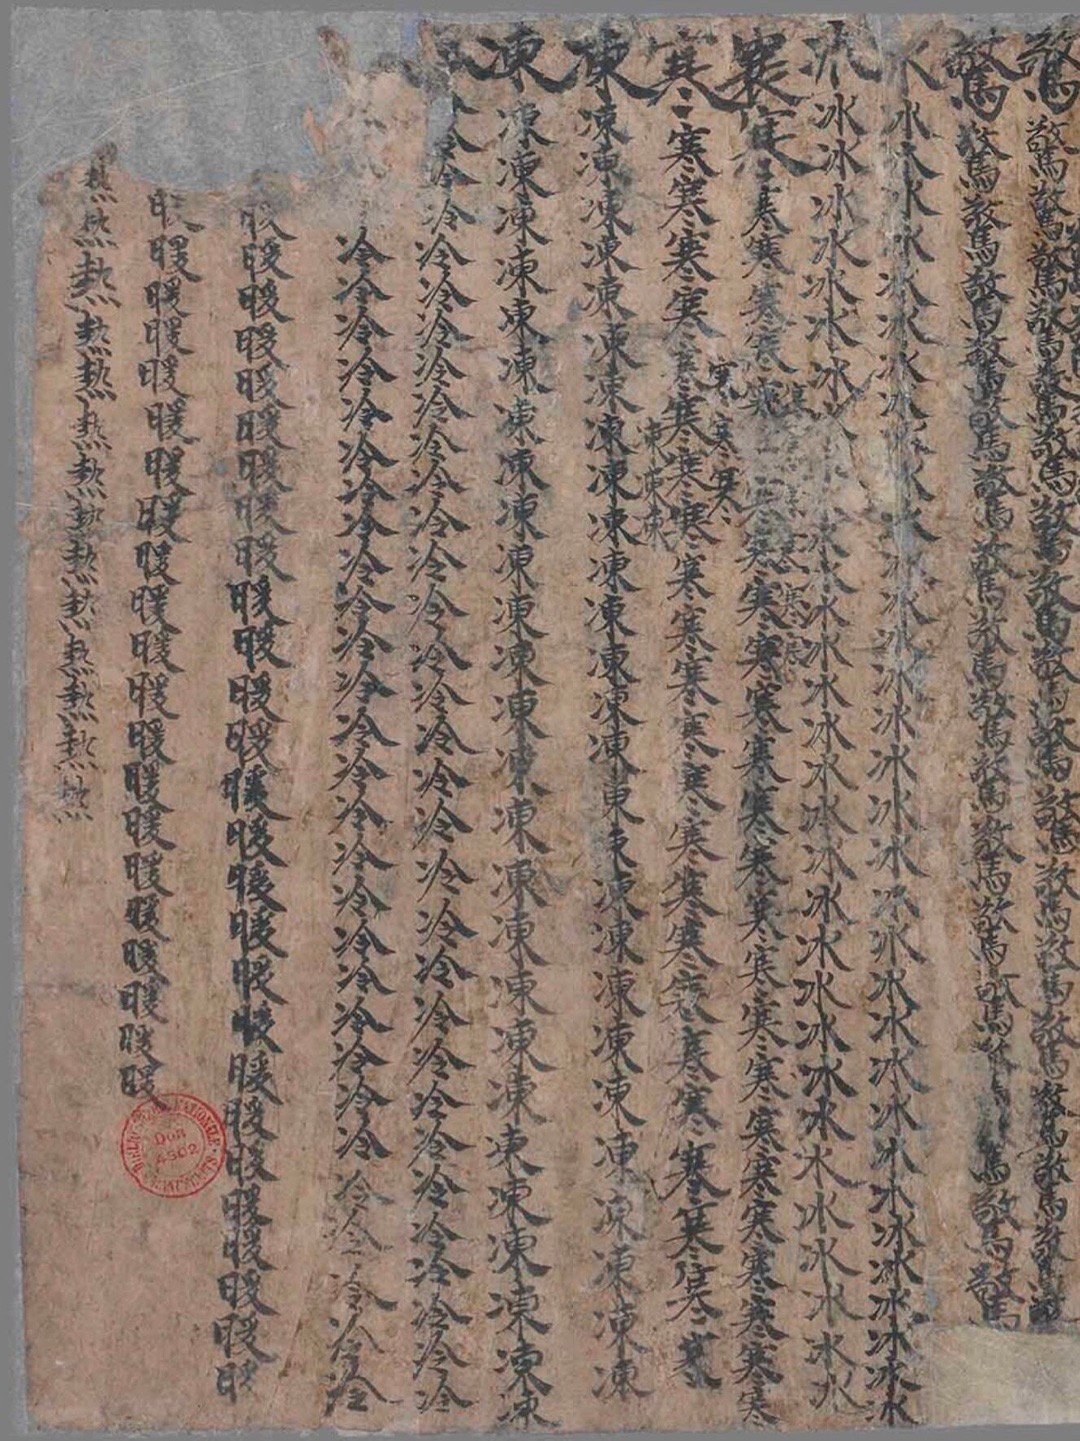 驚驚驚驚驚驚驚驚驚驚驚驚驚驚驚驚驚驚驚驚驚驚驚
驚驚驚驚驚驚驚驚驚驚驚驚驚驚驚驚驚驚驚驚驚驚
氷氷氷氷氷氷氷氷氷氷氷氷氷氷氷氷氷氷氷氷氷氷氷氷氷氷氷
氷氷氷氷氷氷氷氷氷氷氷氷氷氷氷氷氷氷氷氷氷氷氷氷氷氷
寒寒寒寒寒寒寒寒寒寒寒寒寒寒寒寒寒寒寒寒寒寒寒寒寒寒
寒寒寒寒寒寒寒寒寒寒寒寒寒寒寒寒寒寒寒寒寒寒寒寒
凍凍凍凍凍凍凍凍凍凍凍凍凍凍凍凍凍凍凍凍凍凍凍凍凍凍凍凍
凍凍凍凍凍凍凍凍凍凍凍凍凍凍凍凍凍凍凍凍凍凍凍凍凍凍凍
冷冷冷冷冷冷冷冷冷冷冷冷冷冷冷冷冷冷冷冷冷冷冷冷冷冷冷冷冷
冷冷冷冷冷冷冷冷冷冷冷冷冷冷冷冷冷冷冷冷冷冷冷冷冷冷
暖暖暖暖暖暖暖暖暖暖暖暖暖暖暖暖暖暖暖暖暖暖暖暖暖暖暖
暖暖暖暖暖暖暖暖暖暖暖暖暖暖暖暖暖暖暖暖暖
熱熱熱熱熱熱熱熱熱熱熱熱熱熱
Don
4502